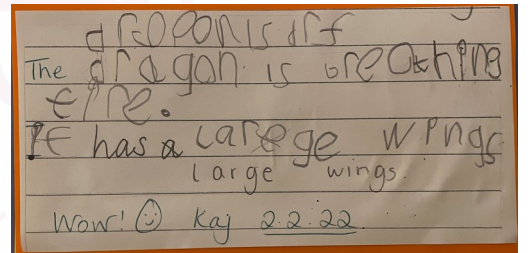 The dragon is breathing
fire.
It has a larege wings
large wings.
Wow! Kaj 2.2.22